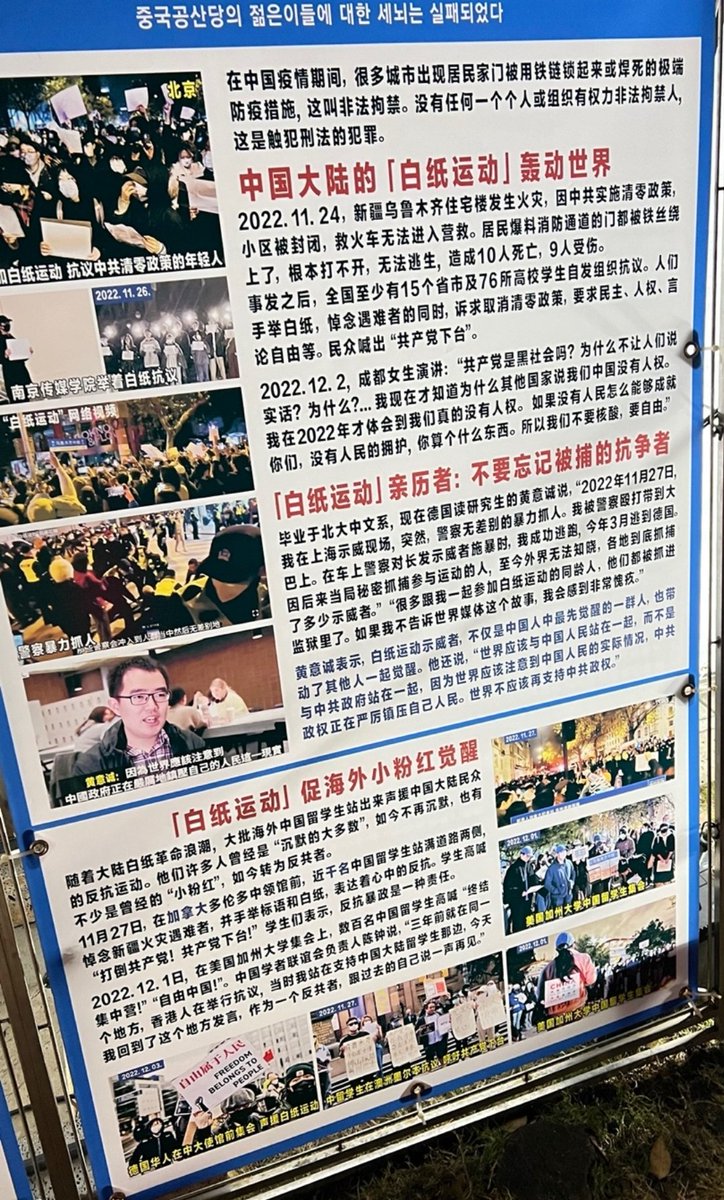 중국공산당의 젊은이들에 대한 세뇌는 실패되었다
在中国疫情期间，很多城市出现居民家门被用铁链锁起来或焊死的极端
防疫措施，这叫非法拘禁。没有任何一个个人或组织有权力非法拘禁人，
这是触犯刑法的犯罪。
中国大陆的「白纸运动」轰动世界
2022.11.24，新疆乌鲁木齐住宅楼发生火灾，因中共实施清零政策，
小区被封闭，救火车无法进入营救。居民爆料消防通道的门都被铁丝绕
上了，根本打不开，无法逃生，造成10人死亡，9人受伤。
事发之后，全国至少有15个省市及76所高校学生自发组织抗议。人们
手举白纸，悼念遇难者的同时，诉求取消清零政策，要求民主、人权、言
论自由等。民众喊出“共产党下台”。
2022.12.2，成都女生演讲：“共产党是黑社会吗？为什么不让人们说
实话？为什么？... 我现在才知道为什么其他国家说我们中国没有人权。
我在2022年才体会到我们真的没有人权。如果没有人民怎么能够成就
你们，没有人民的拥护，你算个什么东西。所以我们不要核酸，要自由。”
「白纸运动」亲历者：不要忘记被捕的抗争者
毕业于北大中文系，现在德国读研究生的黄意诚说，“2022年11月27日，
我在上海示威现场，突然，警察无差别的暴力抓人。我被警察殴打带到大
巴上。在车上警察对长发示威者施暴时，我成功逃跑，今年3月逃到德国。
因后来当局秘密抓捕参与运动的人，至今外界无法知晓，各地到底抓捕
了多少示威者。”“很多跟我一起参加白纸运动的同龄人，他们都被抓进
监狱里了。如果我不告诉世界媒体这个故事，我会感到非常愧疚。”
黄意诚表示，白纸运动示威者，不仅是中国人中最先觉醒的一群人，也带
动了其他人一起觉醒。他还说，“世界应该与中国人民站在一起，而不是
与中共政府站在一起，因为世界应该注意到中国人民的实际情况，中共
政权正在严厉镇压自己人民。世界不应该再支持中共政权。”
北京
加白纸运动 抗议中共清零政策的年轻人
2022.11.26.
南京传媒学院举着白纸抗议
“白纸运动”网络视频
警察暴力抓人
黄意诚：因為世界應該注意到
中國政府正在嚴厲地鎮壓自己的人民這一現實
「白纸运动」促海外小粉红觉醒
随着大陆白纸革命浪潮，大批海外中国留学生站出来声援中国大陆民众
的反抗运动。他们许多人曾经是“沉默的大多数”，如今不再沉默，也有
不少是曾经的“小粉红”，如今转为反共者。
11月27日，在加拿大多伦多中领馆前，近千名中国留学生站满道路两侧，
悼念新疆火灾遇难者，并手举标语和白纸，表达着心中的反抗。学生高喊
“打倒共产党！共产党下台！”学生们表示，反抗暴政是一种责任。
2022.12.1日，在美国加州大学集会上，数百名中国留学生高喊“终结
集中营！”“自由中国！”。中国学者联谊会负责人陈钟说，“三年前就在同一
个地方，香港人在举行抗议，当时我站在支持中国大陆留学生那边，今天
我回到了这个地方发言，作为一个反共者，跟过去的自己说一声再见。”
2022.11.27.
2022.12.01.
美国加州大学中国留学生集会
2022.12.01.
美国加州大学中国留学生集会
2022.12.03.
自由属于人民
FREEDOM
BELONGS TO
PEOPLE
德国华人在中大使馆前集会 声援白纸运动
2022.11.27.
中留学生在澳洲墨尔本抗议 呼吁共产党下台